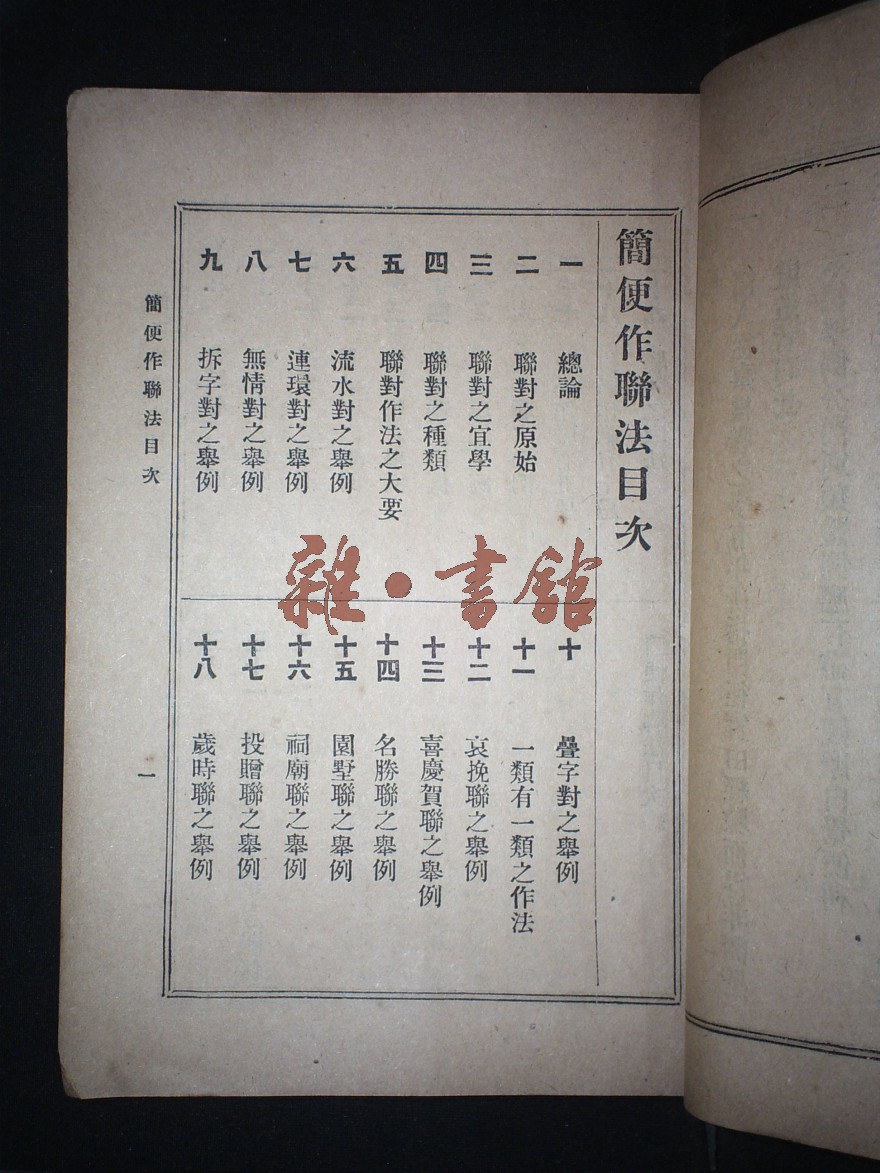 簡便作聯法目次
一 總論
二 聯對之原始
三 聯對之宜學
四 聯對之種類
五 聯對作法之大要
六 流水對之舉例
七 連環對之舉例
八 無情對之舉例
九 拆字對之舉例
十 疊字對之舉例
十一 一類有一類之作法
十二 哀挽聯之舉例
十三 喜慶賀聯之舉例
十四 名勝聯之舉例
十五 園墅聯之舉例
十六 祠廟聯之舉例
十七 投贈聯之舉例
十八 歲時聯之舉例
簡便作聯法目次
一
雜·書館